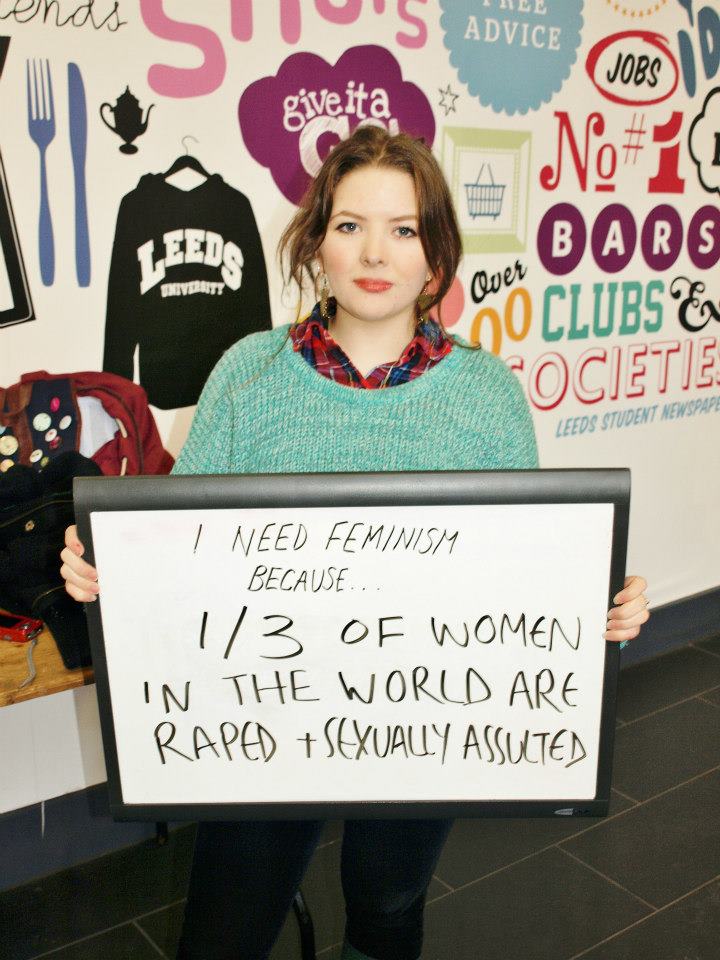 ends
FREE
ADVICE
JOBS
give it a
No#1
LEEDS
UNIVERSITY
BARS
Over
CLUBS
SOCIETIES
LEEDS STUDENT NEWSPAPE
I NEED FEMINISM
BECAUSE...
1/3 OF WOMEN
IN THE WORLD ARE
RAPED + SEXUALLY ASSULTED